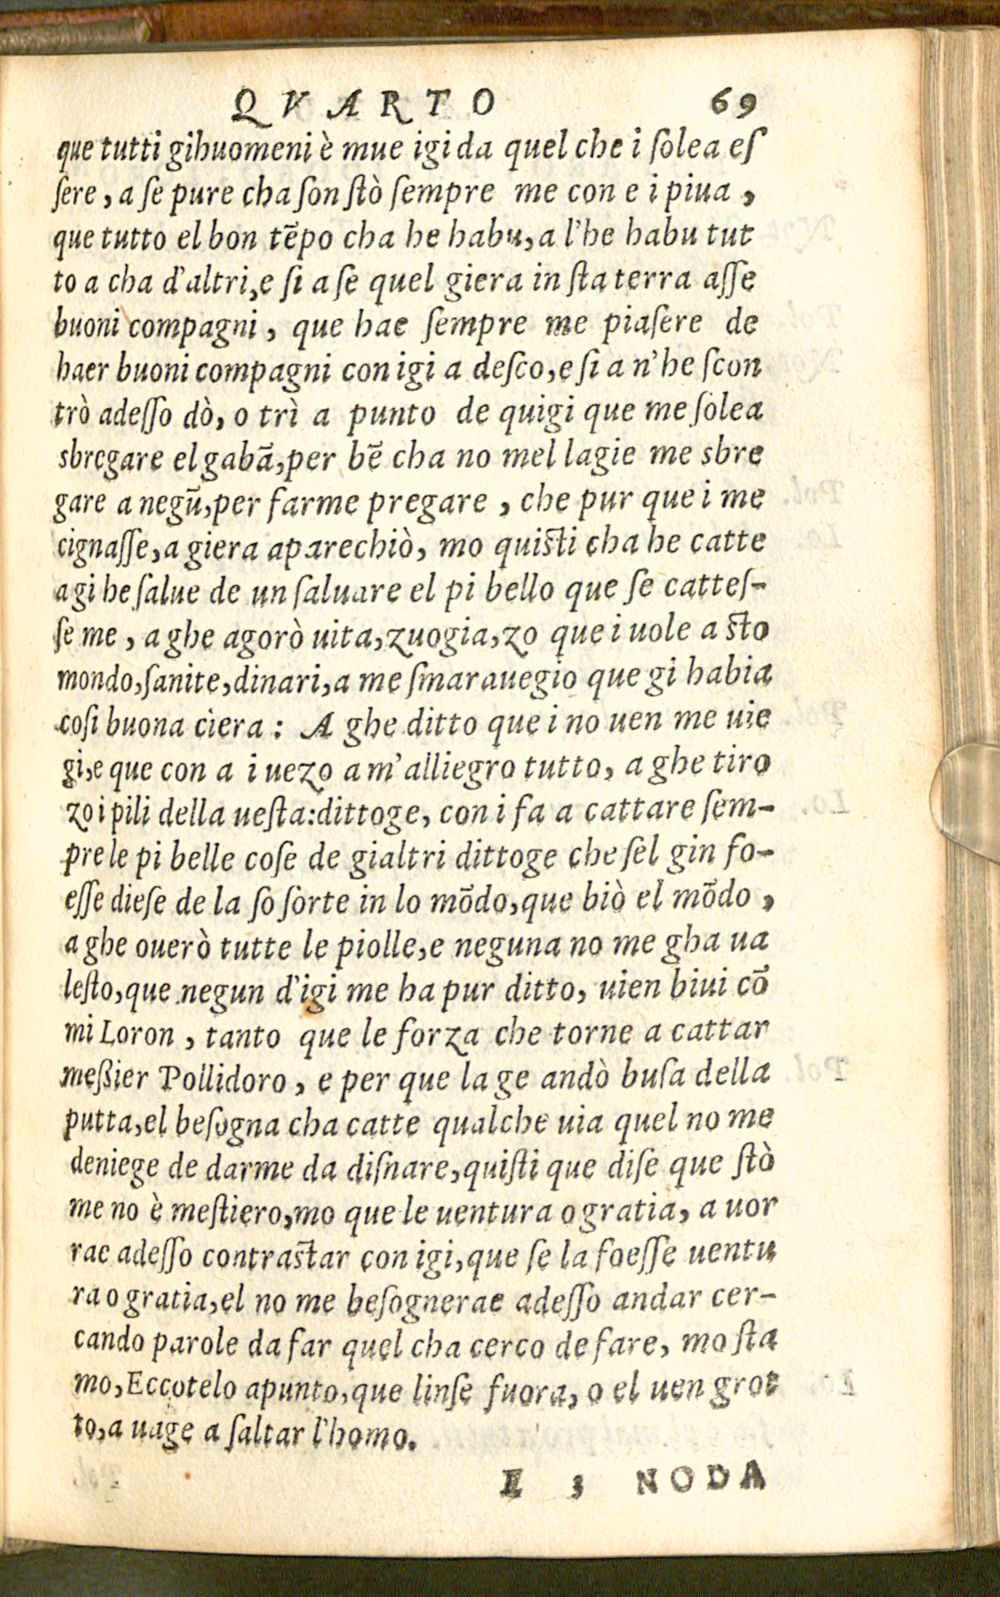 QVARTO 69
que tutti gihuomeni è mue igi da quel che i ſolea eſ
ſere, a ſe pure cha ſon ſtò ſempre me con e i piua,
que tutto el bon tẽpo cha he habu, a l'he habu tut
to a cha d'altri, e ſi a ſe quel giera in ſta terra aſſe
buoni compagni, que hae ſempre me piaſere de
haer buoni compagni con igi a deſco, e ſi a n'he ſcon
trò adeſſo dò, o trì a punto de quigi que me ſolea
sbregare el gabã, per bẽ cha no mel lagie me sbre
gare a negũ, per farme pregare, che pur que i me
cignaſſe, a giera aparechiò, mo quiſti cha he catte
a gi he ſalue de un ſaluare el pi bello que ſe catteſ-
ſe me, a ghe agorò uita, zuogia, zo que i uole a ſto
mondo, ſanite, dinari, a me ſmarauegio que gi habia
coſi buona ciera: A ghe ditto que i no uen me uie
gi, e que con a i uezo a m'alliegro tutto, a ghe tiro
zo i pili della ueſta: dittoge, con i fa a cattare ſem-
pre le pi belle coſe de gialtri dittoge che ſel gin fo-
eſſe dieſe de la ſo ſorte in lo mõdo, que biò el mõdo,
a ghe ouerò tutte le piolle, e neguna no me gha ua
leſto, que negun d'igi me ha pur ditto, uien biui cõ
mi Loron, tanto que le forza che torne a cattar
meßier Pollidoro, e per que la ge andò buſa della
putta, el beſogna cha catte qualche uia quel no me
deniege de darme da diſnare, quiſti que diſe que ſtò
me no è meſtiero, mo que le uentura o gratia, a uor
rae adeſſo contraſtar con igi, que ſe la foeſſe uentu
ra o gratia, el no me beſognerae adeſſo andar cer-
cando parole da far quel cha cerco de fare, mo ſta
mo, Eccotelo apunto, que linſe fuora, o el uen grot
to, a uage a ſaltar l'homo.
E 3 NODA